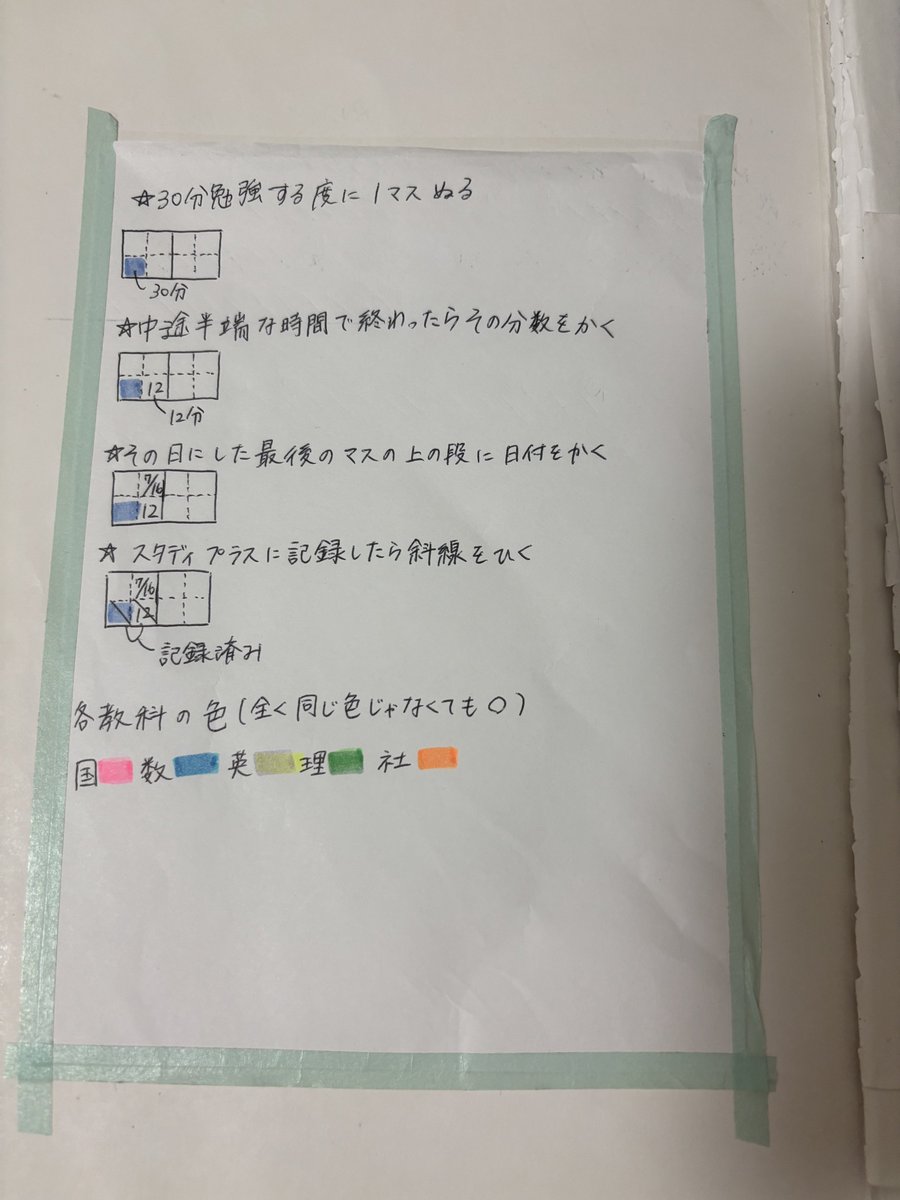 ☆30分勉強する度に1マスぬる
30分
☆中途半端な時間で終わったらその分数をかく
12
12分
☆その日にした最後のマスの上の段に日付をかく
7/16
12
☆スタディプラスに記録したら斜線をひく
7/16
12
記録済み
各教科の色(全く同じ色じゃなくても○)
国 数 英 理 社